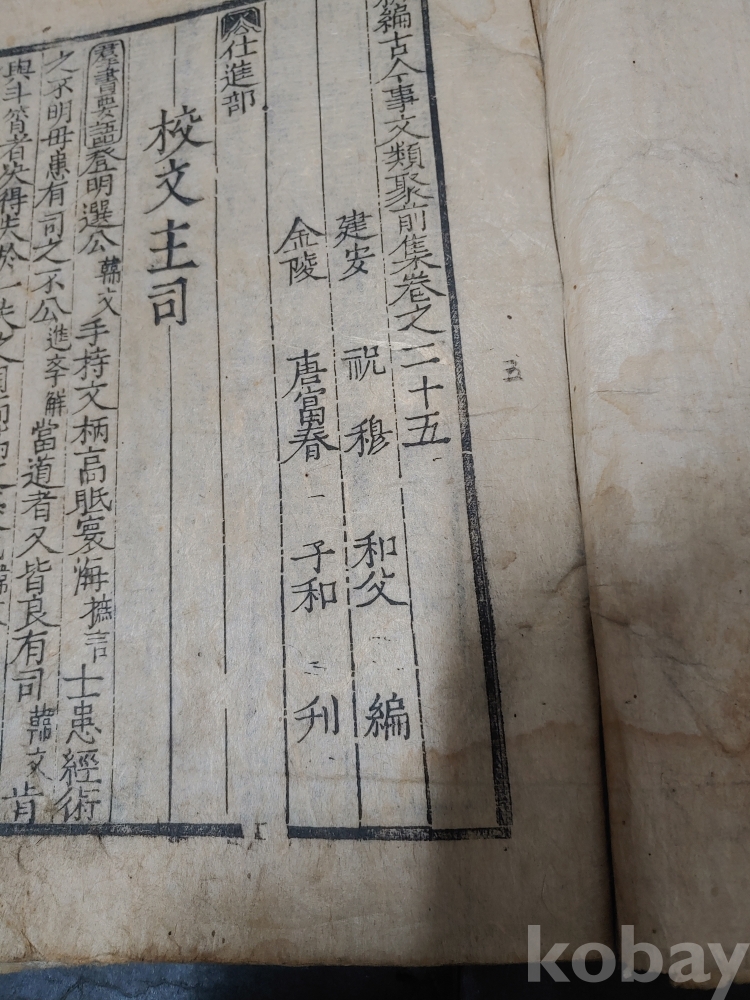 編古今事文類聚前集卷之二十五
建安 祝穆 和父 編
金陵 唐富春 子和 刊
仕進部
校文主司
羣書要語登明選公韓文手持文柄高眂寰海摭言士患經術
之不明毋患有司之不公進李解當道者又皆良有司韓文肯
與斗筲者決得失於一夫之目
五
kobay